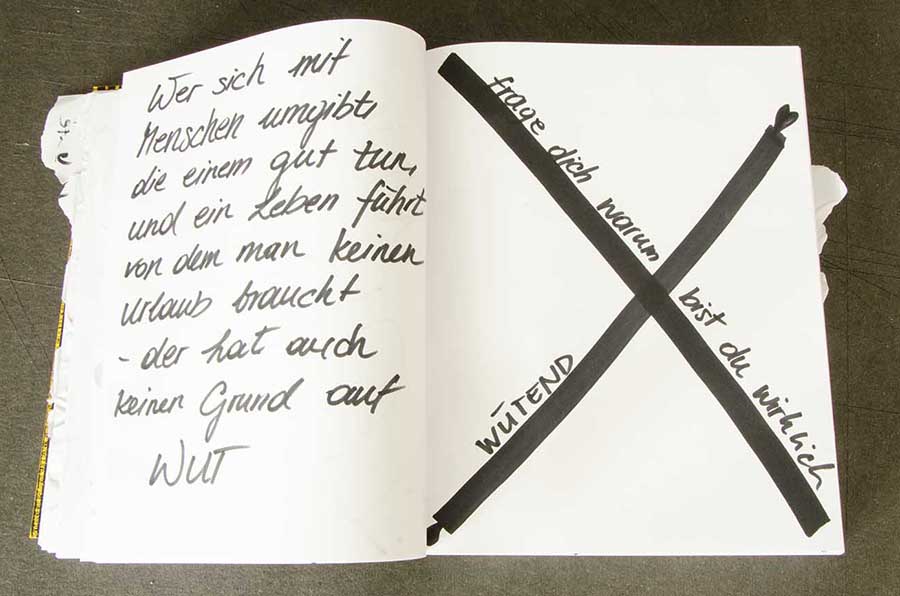 Wer sich mit
Menschen umgibt,
die einem gut tun,
und ein Leben führt
von dem man keinen
Urlaub braucht
- der hat auch
keinen Grund auf
WUT
frage dich warum bist du wirklich
WÜTEND